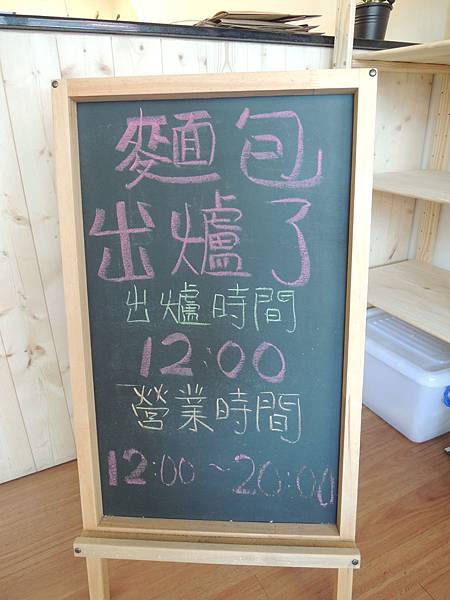 麵包
出爐了
出爐時間
12:00
營業時間
12:00~20:00